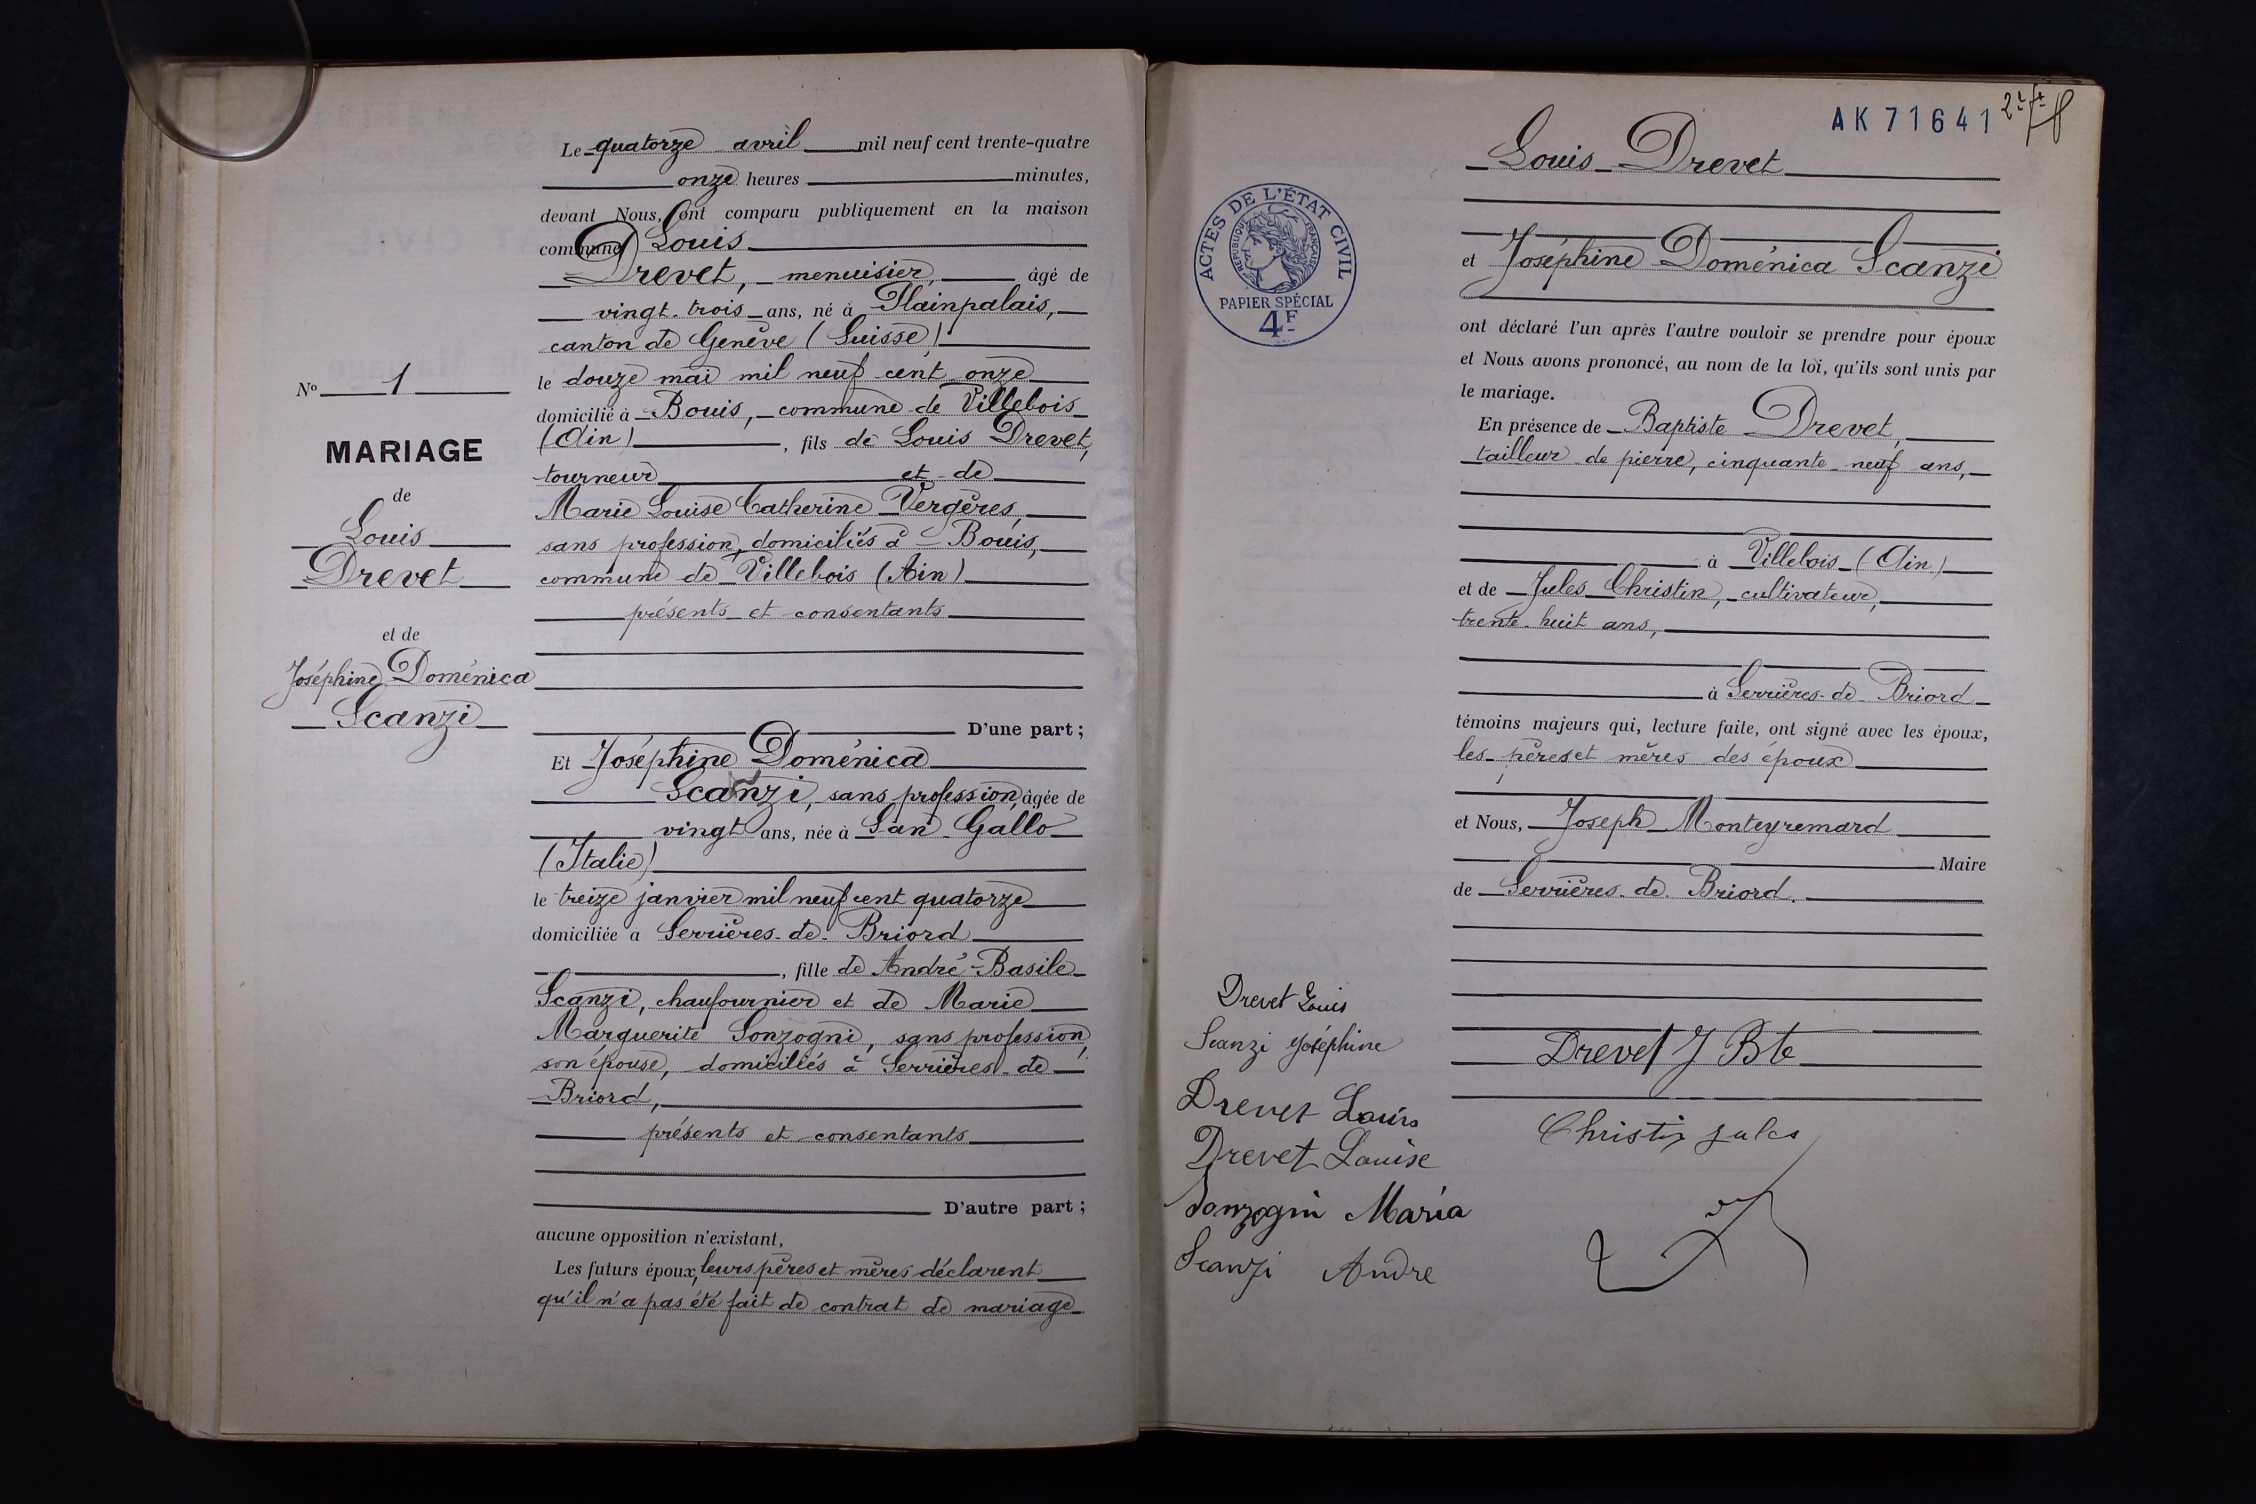 Le quatorze avril mil neuf cent trente-quatre
onze heures minutes,
devant Nous, ont comparu publiquement en la maison
commune Louis
Drevet, menuisier, âgé de
vingt-trois ans, né à Plainpalais,
canton de Genève (Suisse)
le douze mai mil neuf cent onze
domicilié à Bouis, commune de Villebois
(Ain) , fils de Louis Drevet,
tourneur et de
Marie Louise Catherine Vergères,
sans profession, domiciliés à Bouis,
commune de Villebois (Ain)
présents et consentants
D'une part ;
Et Joséphine Doménica
Scanzi, sans profession, âgée de
vingt ans, née à San Gallo
(Italie)
le treize janvier mil neuf cent quatorze
domiciliée a Serrières-de-Briord
, fille de André-Basile
Scanzi, chaufournier et de Marie
Marguerite Sonzogni, sans profession,
son épouse, domiciliés à Serrières-de-
Briord,
présents et consentants
D'autre part ;
aucune opposition n'existant,
Les futurs époux, leurs pères et mères déclarent
qu'il n'a pas été fait de contrat de mariage
No 1
MARIAGE
de
Louis
Drevet
et de
Joséphine Doménica
Scanzi
AK 71641
Louis Drevet
et Joséphine Doménica Scanzi
ont déclaré l'un après l'autre vouloir se prendre pour époux
et Nous avons prononcé, au nom de la loi, qu'ils sont unis par
le mariage.
En présence de Baptiste Drevet,
tailleur de pierre, cinquante-neuf ans,
à Villebois (Ain)
et de Jules Christin, cultivateur,
trente-huit ans,
à Serrières-de-Briord
témoins majeurs qui, lecture faite, ont signé avec les époux,
les pères et mères des époux
et Nous, Joseph Monteyremard
Maire
de Serrières-de-Briord.
ACTES DE L'ÉTAT CIVIL
RÉPUBLIQUE FRANÇAISE
PAPIER SPÉCIAL
4F
Drevet Louis
Scanzi Joséphine
Drevet Louis
Drevet Louise
Sonzogni Maria
Scanzi Andre
Drevet J Bte
Christin Jules